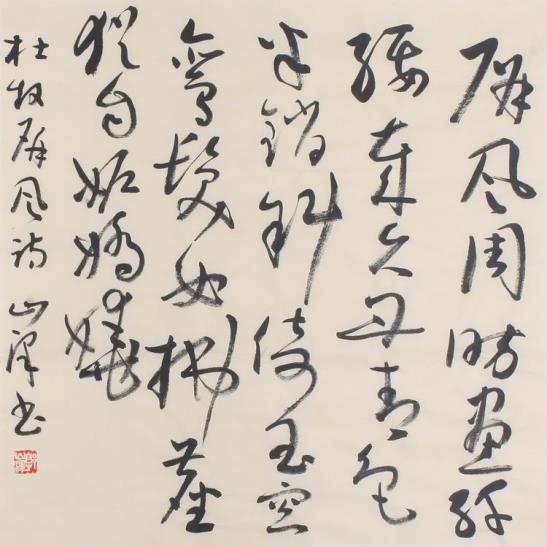 屏风周昉画纤
腰岁久丹青色
半销斜倚玉窗
鸾髮女拂尘
犹自妒娇娆
杜牧屏风诗 山书